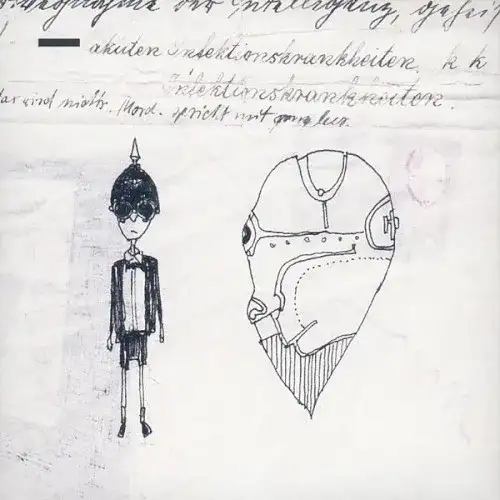 der Intelligenz, geheil
akuten Infektionskrankheiten. k k
Infektionskrankheiten.
das wird nicht. Mord. spricht mit